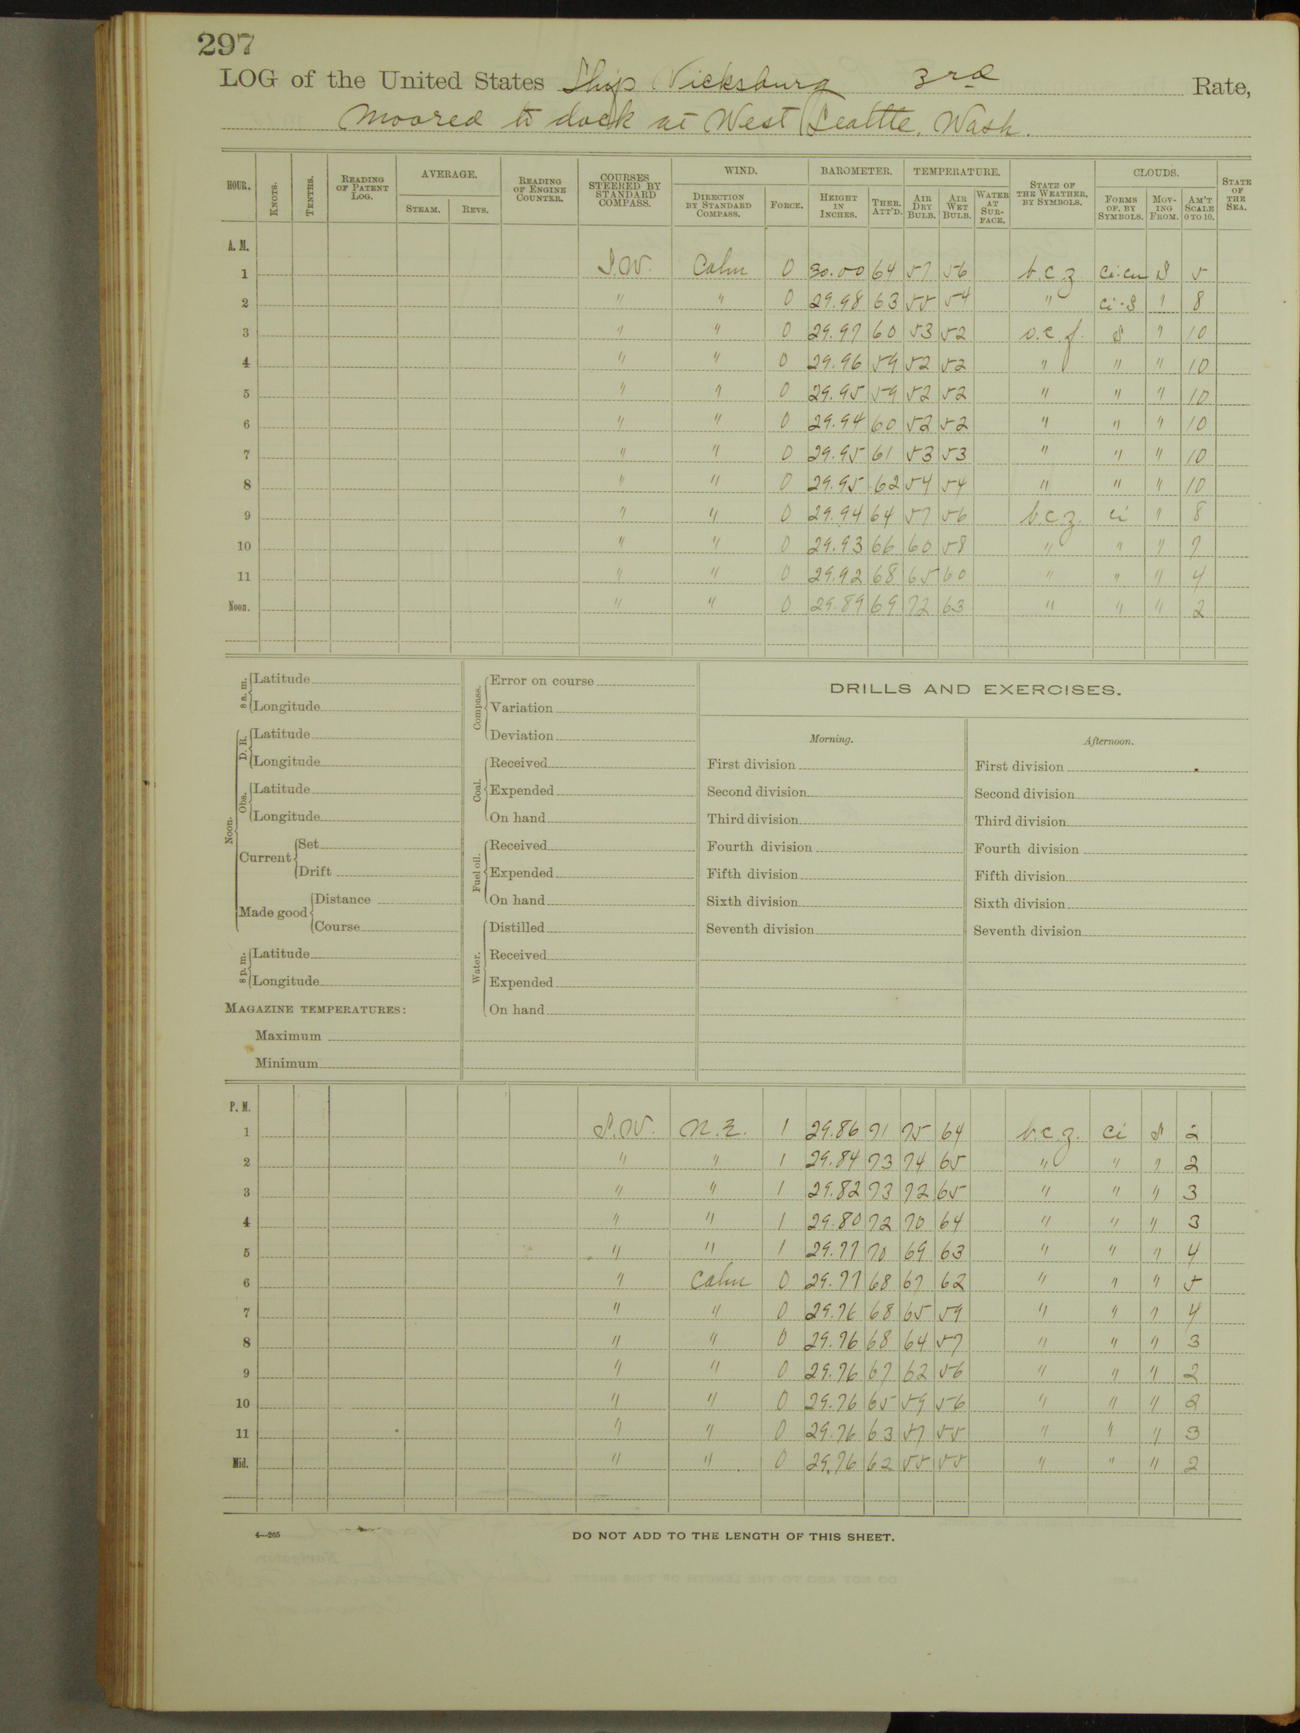 297
LOG of the United States Ship Vicksburg 3rd Rate,
Moored to dock at West Seattle, Wash.
HOUR. KNOTS. TENTHS. READING OF PATENT LOG. AVERAGE. STEAM. REVS. READING OF ENGINE COUNTER. COURSES STEERED BY STANDARD COMPASS. WIND. DIRECTION BY STANDARD COMPASS. FORCE. BAROMETER. HEIGHT IN INCHES. THER. ATT'D. TEMPERATURE. AIR DRY BULB. AIR WET BULB. WATER AT SURFACE. STATE OF THE WEATHER, BY SYMBOLS. CLOUDS. FORMS OF, BY SYMBOLS. MOVING FROM. AM'T SCALE 0 TO 10. STATE OF THE SEA.
A. M.
1 S.W. Calm 0 30.00 64 57 56 b.c.z ci-cu S 5
2 " " 0 29.98 63 55 54 " ci-S " 8
3 " " 0 29.97 60 53 52 o.c.f. S " 10
4 " " 0 29.96 59 52 52 " " " 10
5 " " 0 29.95 59 52 52 " " " 10
6 " " 0 29.94 60 52 52 " " " 10
7 " " 0 29.95 61 53 53 " " " 10
8 " " 0 29.95 62 54 54 " " " 10
9 " " 0 29.94 64 57 56 b.c.z. ci " 8
10 " " 0 29.93 66 60 58 " " " 7
11 " " 0 29.92 68 65 60 " " " 4
Noon. " " 0 29.89 69 72 63 " " " 2
8 a. m. Latitude
Longitude
Noon. D. R. Latitude
Longitude
Obs. Latitude
Longitude
Current Set
Drift
Made good Distance
Course
8 p. m. Latitude
Longitude
MAGAZINE TEMPERATURES:
Maximum
Minimum
Compass. Error on course
Variation
Deviation
Coal. Received
Expended
On hand
Fuel oil. Received
Expended
On hand
Water. Distilled
Received
Expended
On hand
DRILLS AND EXERCISES.
Morning.
First division
Second division
Third division
Fourth division
Fifth division
Sixth division
Seventh division
Afternoon.
First division
Second division
Third division
Fourth division
Fifth division
Sixth division
Seventh division
P. M.
1 S.W. N.E. 1 29.86 71 75 64 b.c.z. ci S 2
2 " " 1 29.84 73 74 65 " " " 2
3 " " 1 29.82 73 72 65 " " " 3
4 " " 1 29.80 72 70 64 " " " 3
5 " " 1 29.77 70 69 63 " " " 4
6 " Calm 0 29.77 68 67 62 " " " 5
7 " " 0 29.76 68 65 59 " " " 4
8 " " 0 29.76 68 64 57 " " " 3
9 " " 0 29.76 67 62 56 " " " 2
10 " " 0 29.76 65 59 56 " " " 2
11 " " 0 29.76 63 57 55 " " " 3
Mid. " " 0 29.76 62 55 55 " " " 2
4—265
DO NOT ADD TO THE LENGTH OF THIS SHEET.